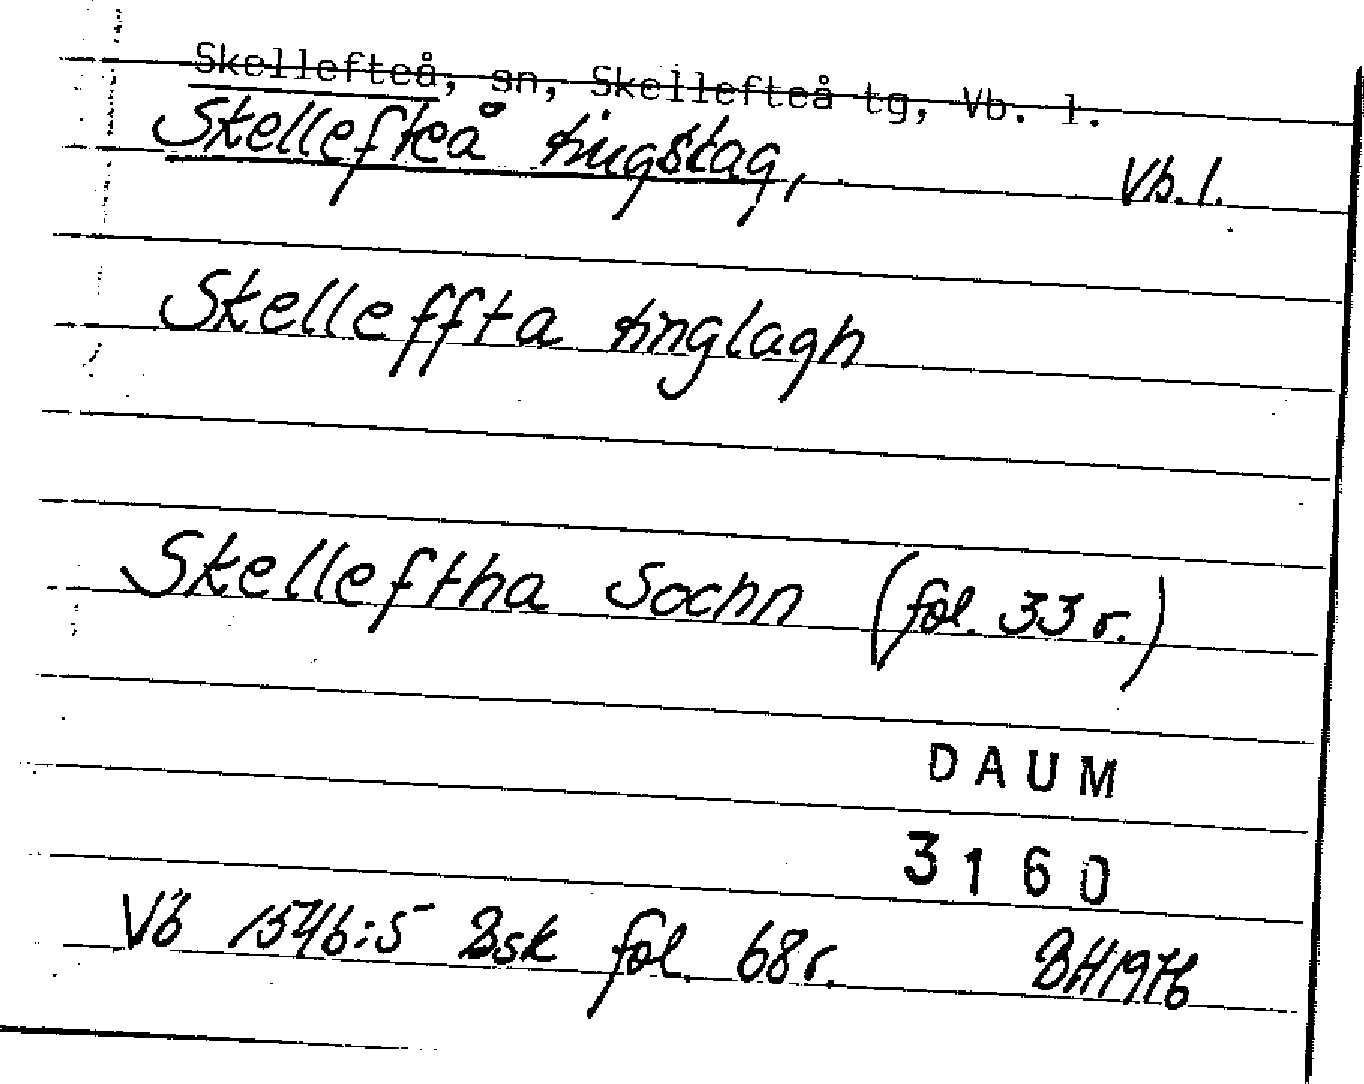 Skellefteå, sn, Skellefteå tg, Vb. l.
Skellefteå tingslag, Vb. l.
Skelleffta tinglagh
Skelleftha Sochn (fol. 33 r.)
DAUM
3160
Vb 1546:5 Bsk fol. 68 r. BH 1976